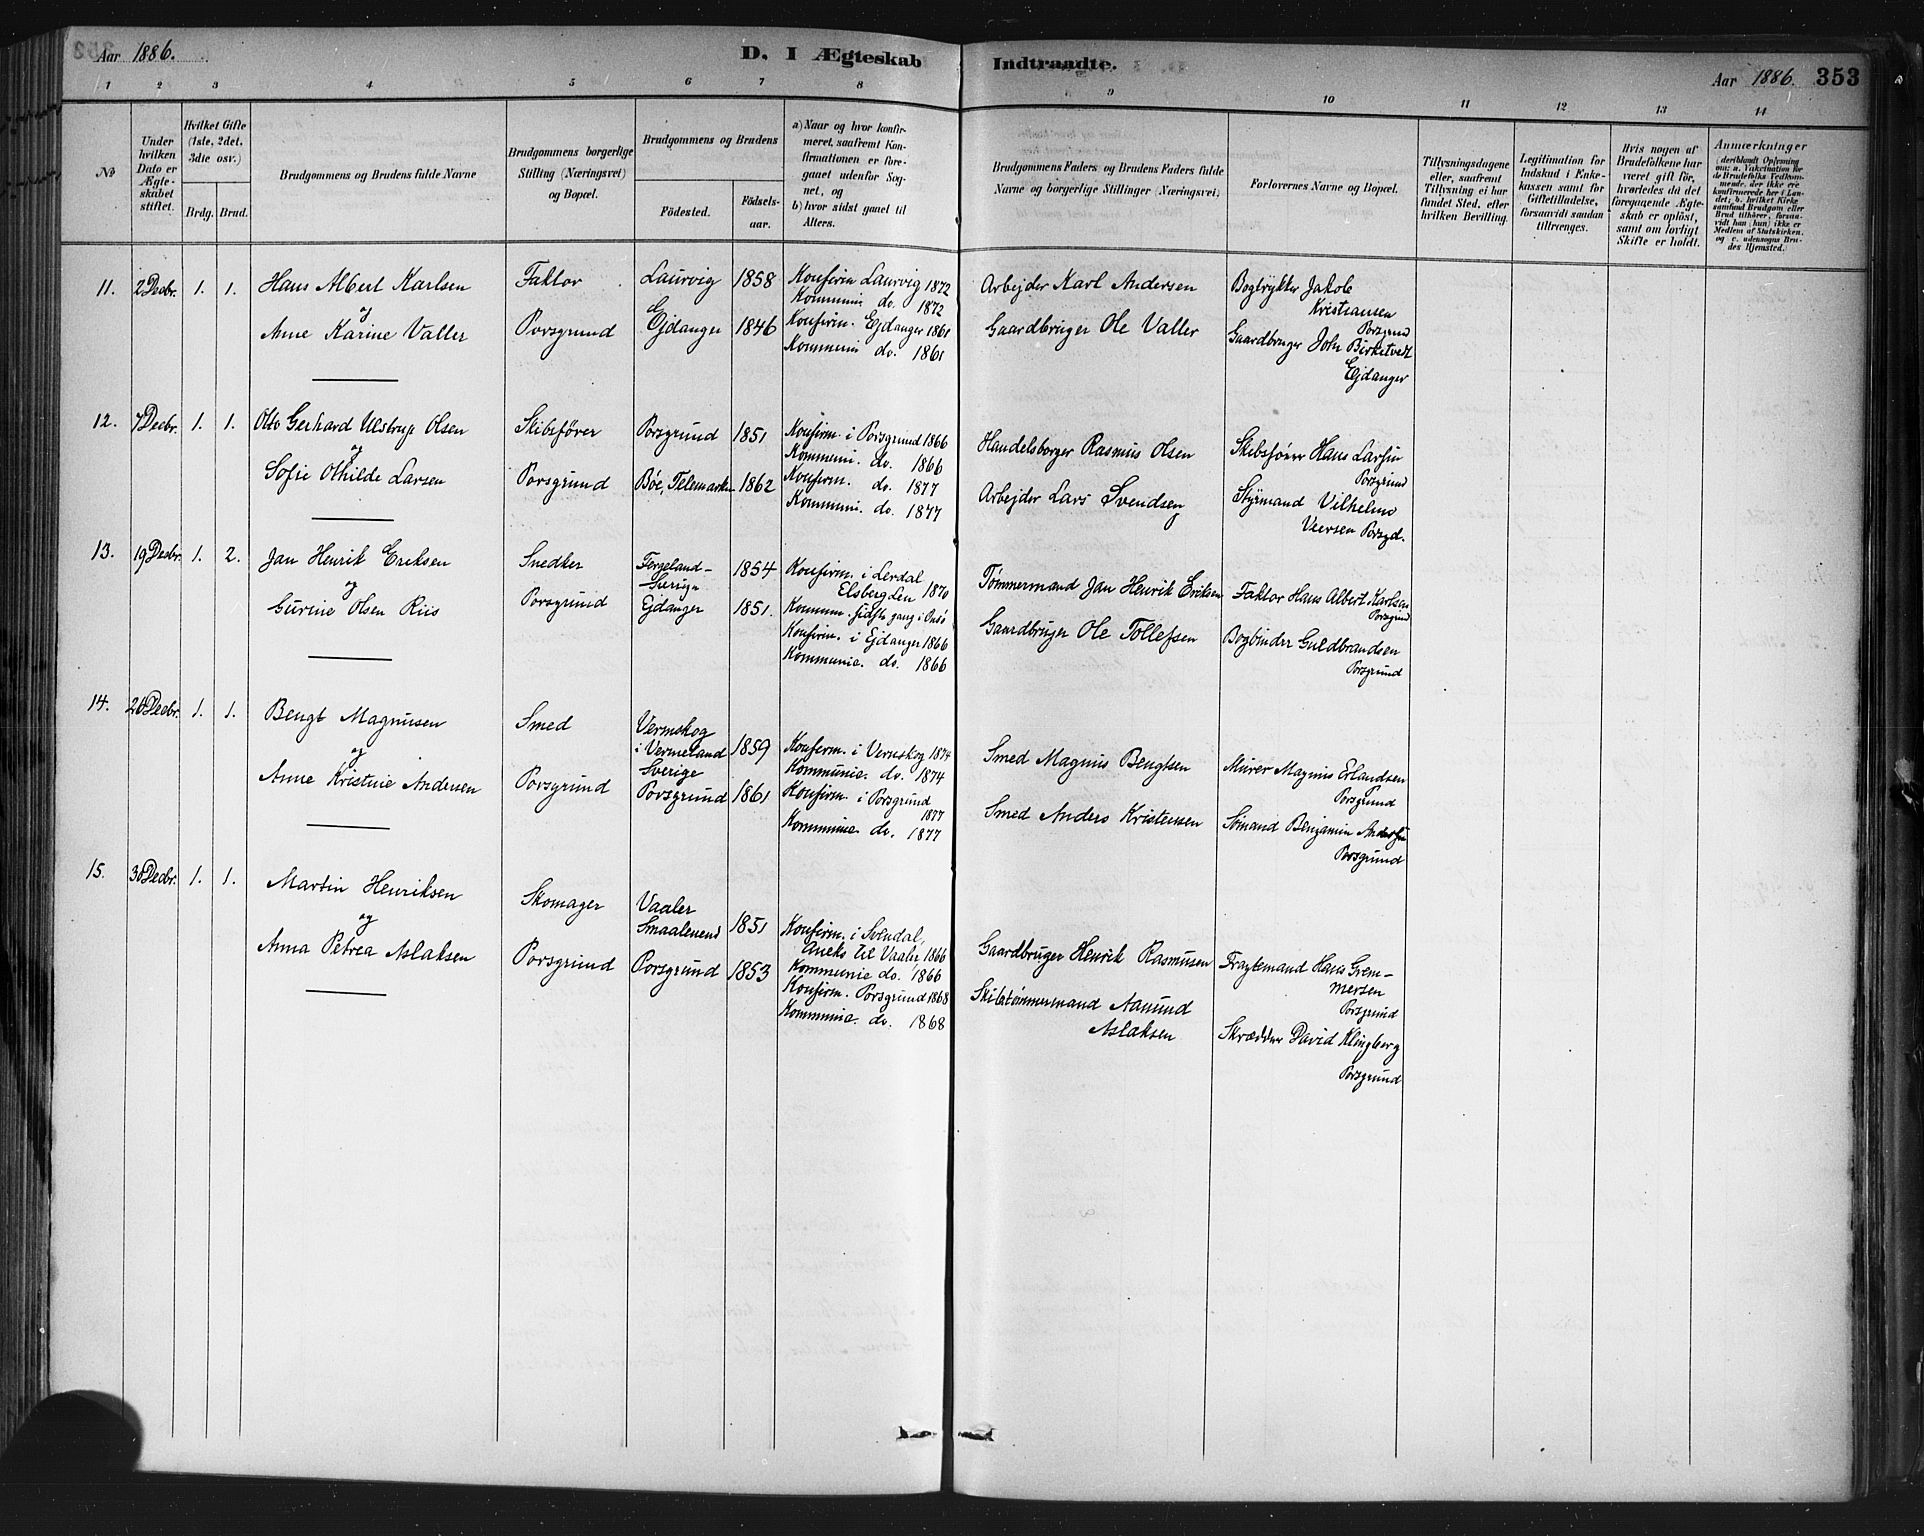 Aar 1886.
D. I Ægteskab Indtraadte.
Aar 1886. 353
1 2 3 4 5 6 7 8 9 10 11 12 13 14
No
Under hvilken Dato er Ægteskabet stiftet.
Hvilket Gifte (1ste, 2det, 3die osv.)
Brdg. Brud.
Brudgommens og Brudens fulde Navne
Brudgommens borgerlige Stilling (Næringsvei) og Bopæl.
Brudgommens og Brudens
Fødested. Fødselsaar.
a) Naar og hvor konfirmeret, saafremt Konfirmationen er foregaaet udenfor Sognet, og
b) hvor sidst gaaet til Alters.
Brudgommens Faders og Brudens Faders fulde Navne og borgerlige Stillinger (Næringsvei)
Forlovernes Navne og Bopæl.
Tillysningsdagene eller, saafremt Tillysning ei har fundet Sted, efter hvilken Bevilling.
Legitimation for Indskud i Enkekassen samt for Giftetilladelse, forsaavidt saadan tiltrænges.
Hvis nogen af Brudefolkene har været gift før, hvorledes da det foregaaende Ægteskab er opløst, samt om lovligt Skifte er holdt.
Anmærkninger
(deriblandt Oplysning om: a. Vakcination for de Brudefolks Vedkommende, der ikke ere konfirmerede her i Landet; b. hvilket Kirkesamfund Brudgom eller Brud tilhører, forsaavidt han (hun) ikke er Medlem af Statskirken, og c. udensogns Brudes Hjemsted.
11. 2 Decbr. 1. 1. Hans Albert Karlsen
og
Anne Karine Valler
Faktor
Porsgrund
Laurvig 1858
Ejdanger 1846
Konfirm Laurvig 1872
Kommunio do. 1872
Konfirm. Ejdanger 1861
Kommunio do. 1861
Arbejder Karl Andersen
Gaardbruger Ole Valler
Bogtrykker Jakob
Kristiansen
Porsgrund
Gaardbruger John Birketvedt
Ejdanger
12. 7 Decbr. 1. 1. Otto Gerhard Ulstrup Olsen
og
Sofie Othilde Larsen
Skibsfører
Porsgrund
Porsgrund 1851
Bøe, Telemarken 1862
Konfirm. i Porsgrund 1866
Kommuni. do. 1866
Konfirm. do. 1877
Kommuni. do. 1877
Handelsborger Rasmus Olsen
Arbejder Lars Svendsen
Skibsfører Hans Larsen
Porsgrund
Styrmand Vilhelm
Porsgd.
13. 19 Decbr. 1. 2. Jan Henrik Eriksen
og
Gurine Olsen Riis
Snedker
Porsgrund
Sverige 1854
Ejdanger 1851.
Konfirm. i Lerdal
1870
Kommun. sidste gang i Onsø
Konfirm. i Ejdanger 1866
Kommunio. do. 1866
Tømmermand Jan Henrik Eriksen
Gaardbruger Ole Tollefsen
Faktor Hans Albert Karlsen
Porsgrund
Bogbinder Guldbrandsen
Porsgrund
14. 26 Decbr. 1. 1. Bengt Magnusen
og
Anne Kristine Andersen
Smed
Porsgrund
Vermskog
i Vermeland 1859
Sverige
Porsgrund 1861
Konfirm. i Vermskog 1874
Kommunio. do. 1874
Konfirm. i Porsgrund
1877
Kommunio do. 1877
Smed Magnus Bengtsen
Smed Anders Kristensen
Murer Magnus Erlandsen
Porsgrund
Sømand Benjamin Andersen
Porsgrund
15. 30 Decbr. 1. 1. Martin Henriksen
og
Anna Petrea Aslaksen
Skomager
Porsgrund
Vaaler
Smaalenene 1851
Porsgrund 1853
Konfirm. i Svendal,
Aneks til Vaaler 1866
Kommunie do. 1866
Konfirm. Porsgrund 1868
Kommunie. do. 1868
Gaardbruger Henrik Rasmusen
Skibstømmermand Aamund
Aslaksen
Fragtemand Hans Grem-
mersen
Porsgrund
Skrædder David Klingberg
Porsgrund